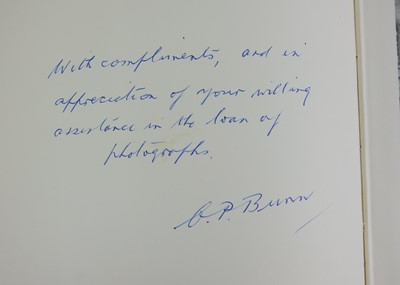 With compliments, and in
appreciation of your willing
assistance in the loan of
photographs.
C.P. Bunn